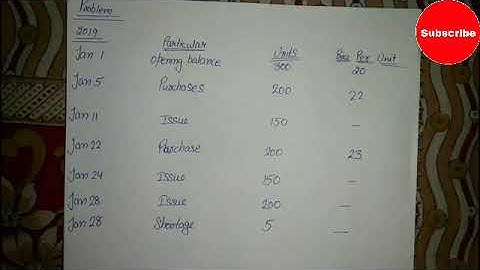 Problem
Subscribe
2019
Particular Units Per Unit
Jan 1 opening balance 300 20
Jan 5 Purchases 200 22
Jan 11 Issue 150 —
Jan 22 Purchase 200 23
Jan 24 Issue 150 —
Jan 28 Issue 200 —
Jan 28 Shortage 5 —